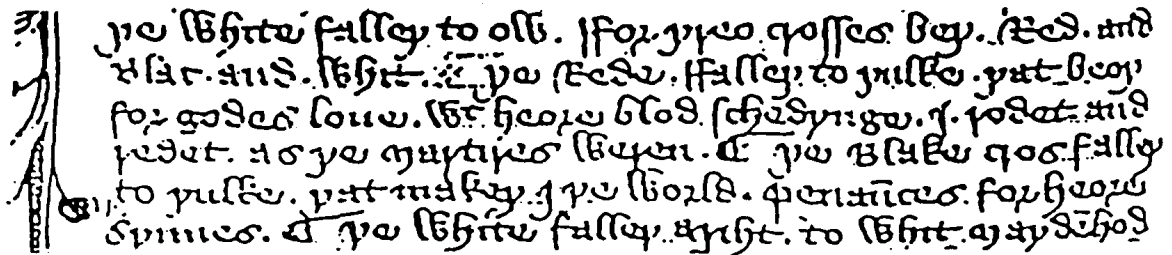 þe white falleþ to ow. ffor. þreo. crosses beþ. Red. and
Blac. and. whit. þe Rede. ffalleþ. to þulke. þat beoþ
for godes loue. wt heore blod schedynge. I. rodet. and
redet. as þe martires weren. ¶ þe Blake cros falleþ
to þulke. þat makeþ. I þe world. penaūces for heore
synnes. ¶ þe white falleþ ariht. to whit maydēhod